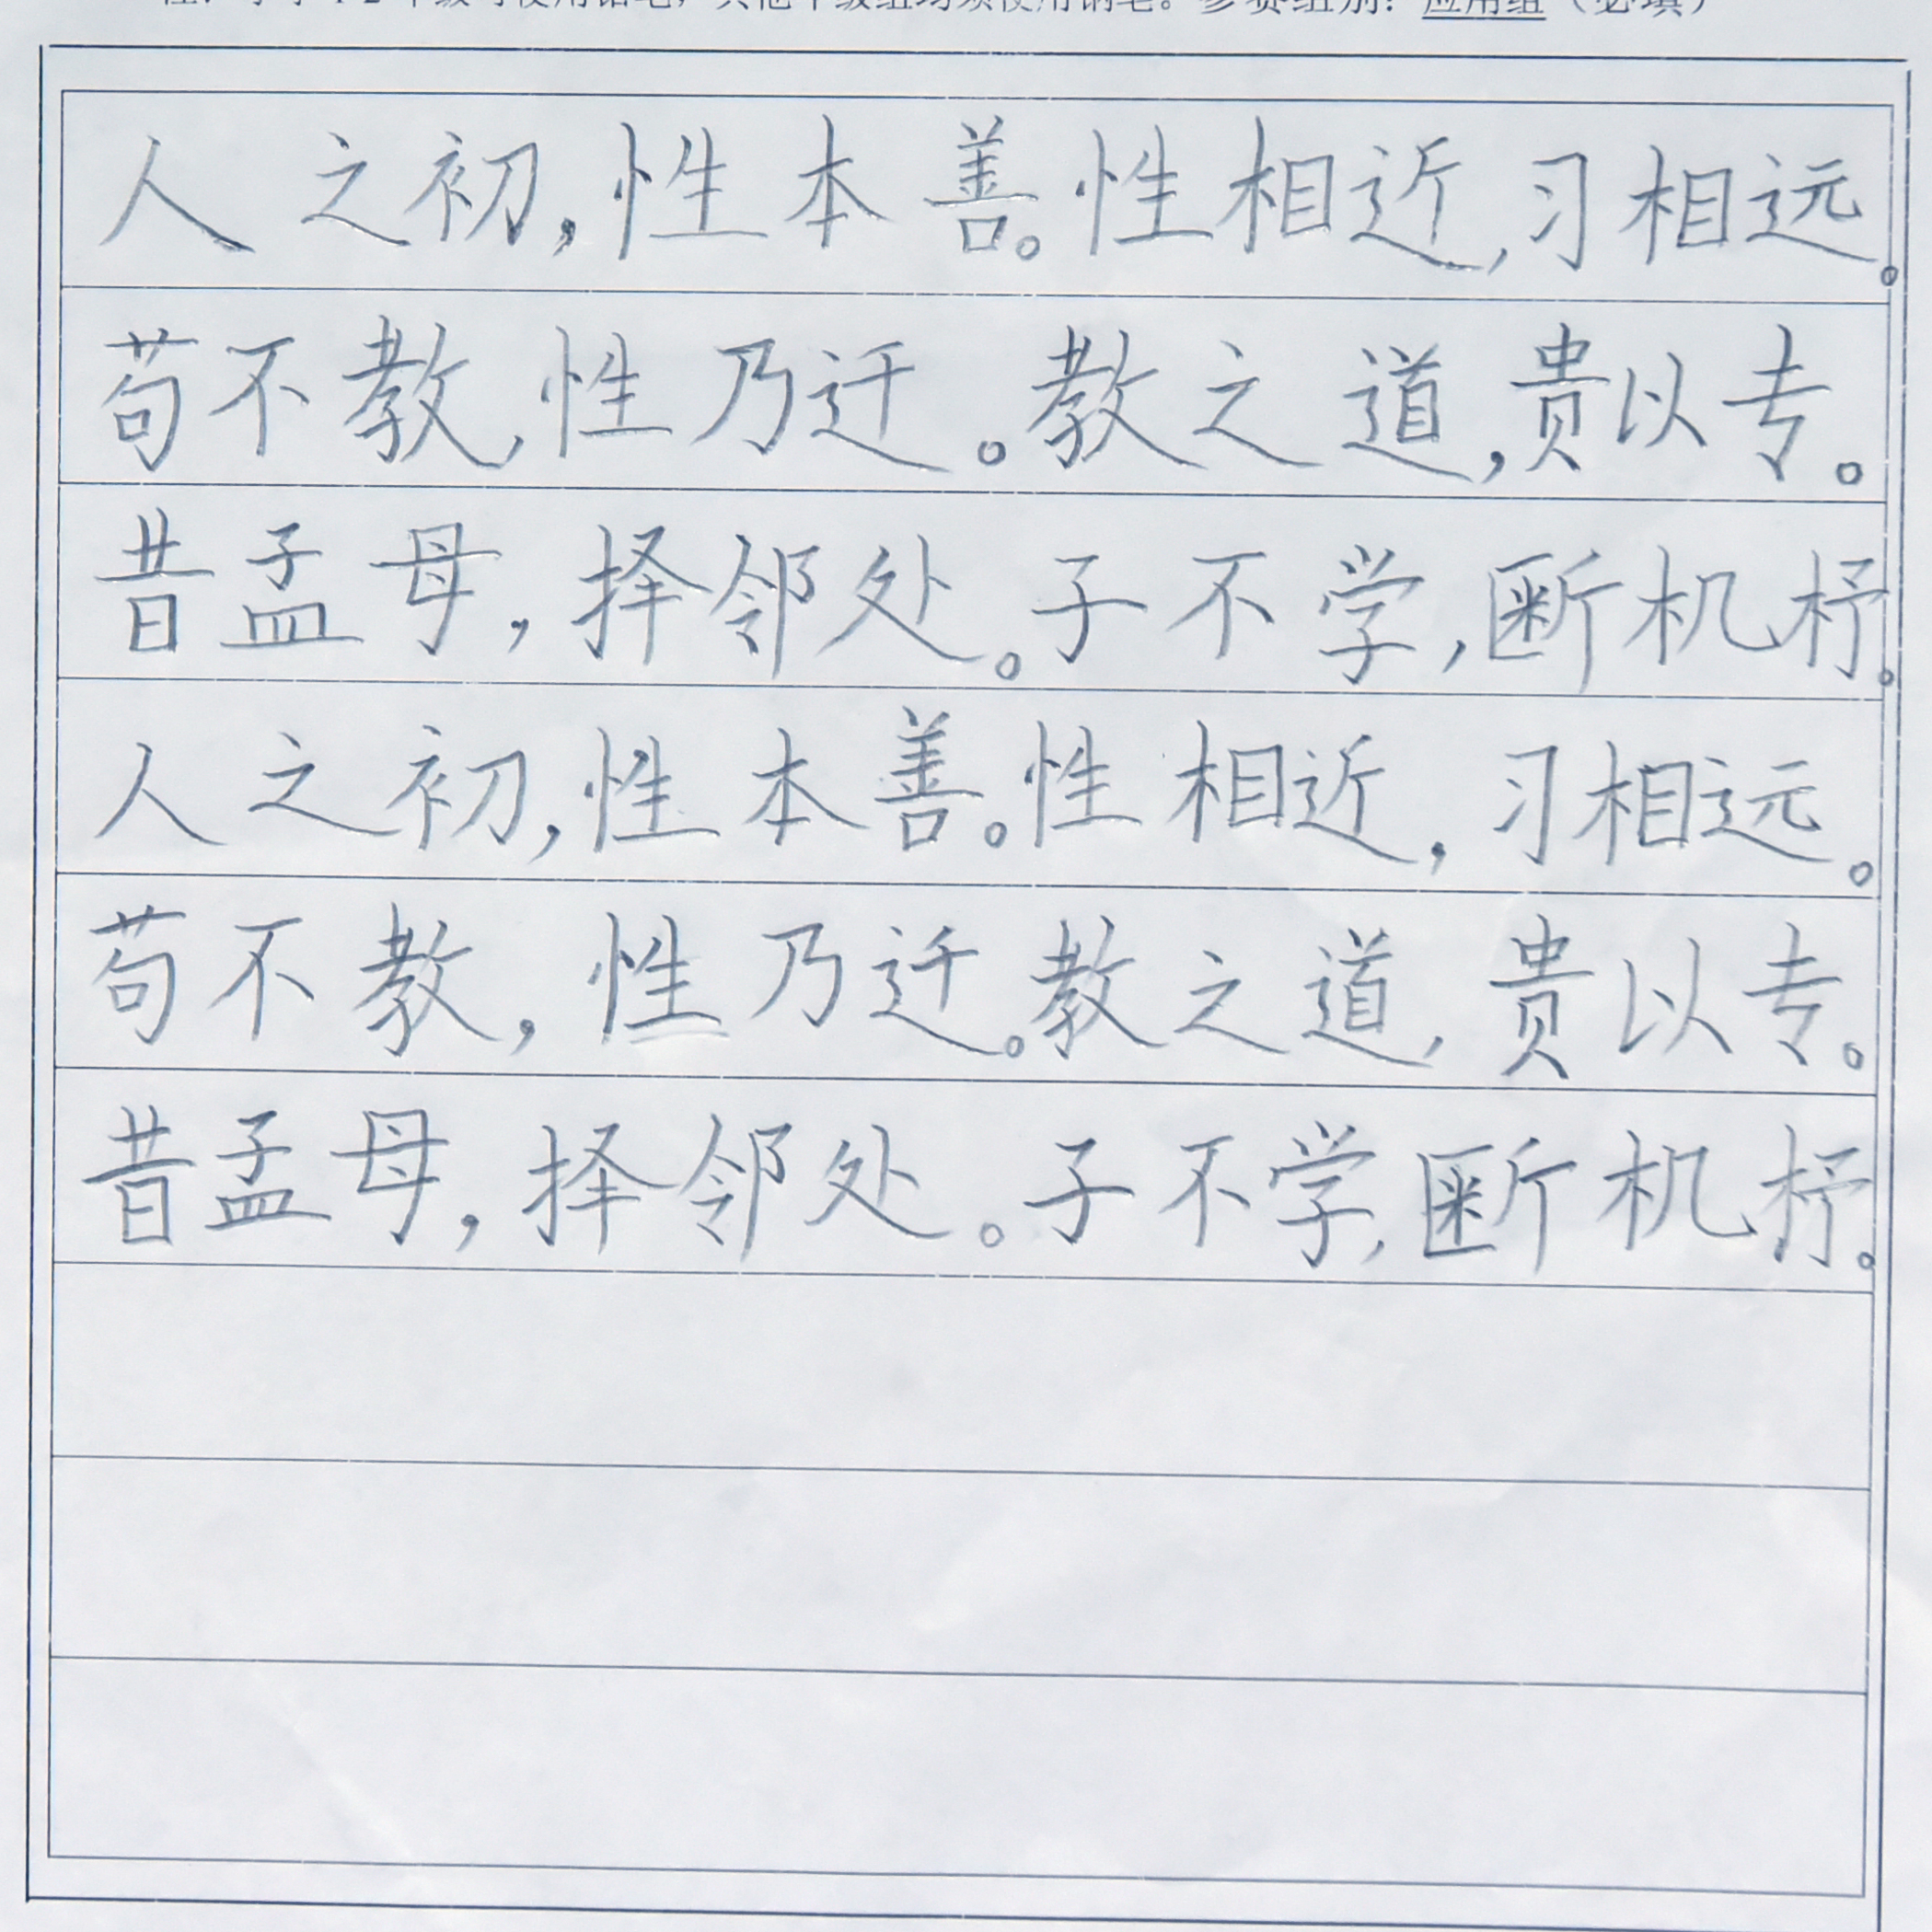 注：小学 1-2 年级可使用铅笔，其他年级组均须使用钢笔。参赛组别：应用组（必填）
人之初，性本善。性相近，习相远。
苟不教，性乃迁。教之道，贵以专。
昔孟母，择邻处。子不学，断机杼。
人之初，性本善。性相近，习相远。
苟不教，性乃迁。教之道，贵以专。
昔孟母，择邻处。子不学，断机杼。